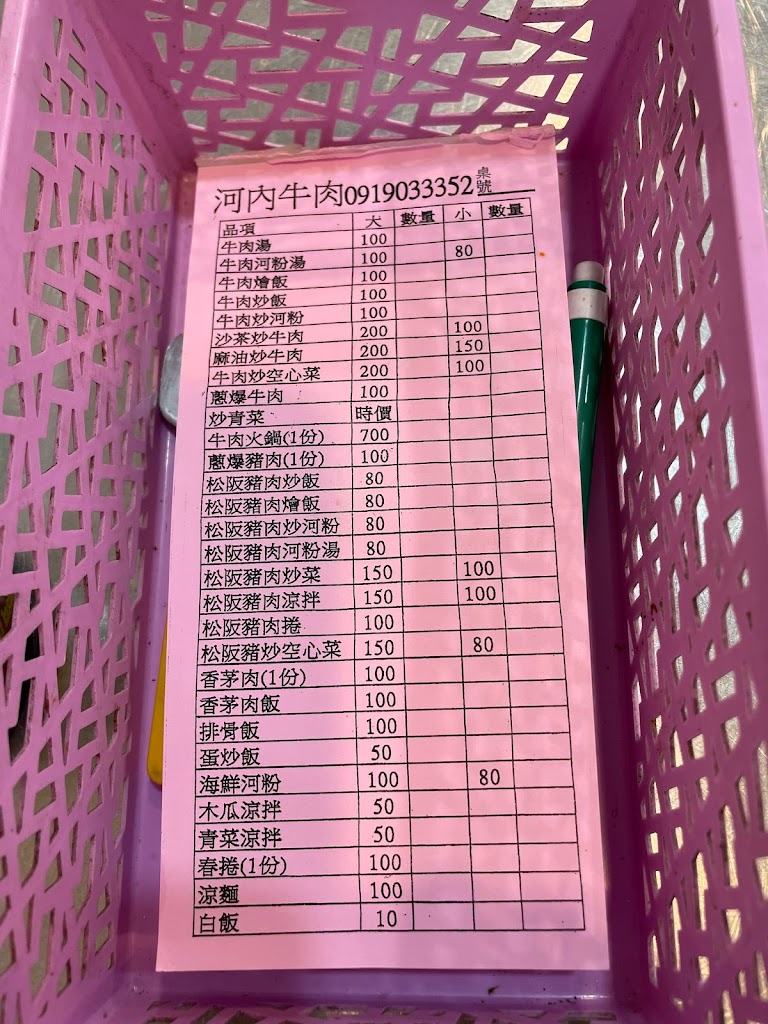 河內牛肉0919033352桌號
品項 大 數量 小 數量
牛肉湯 100
牛肉河粉湯 100 80
牛肉燴飯 100
牛肉炒飯 100
牛肉炒河粉 100
沙茶炒牛肉 200 100
麻油炒牛肉 200 150
牛肉炒空心菜 200 100
蔥爆牛肉 100
炒青菜 時價
牛肉火鍋(1份) 700
蔥爆豬肉(1份) 100
松阪豬肉炒飯 80
松阪豬肉燴飯 80
松阪豬肉炒河粉 80
松阪豬肉河粉湯 80
松阪豬肉炒菜 150 100
松阪豬肉涼拌 150 100
松阪豬肉捲 100
松阪豬炒空心菜 150 80
香茅肉(1份) 100
香茅肉飯 100
排骨飯 100
蛋炒飯 50
海鮮河粉 100 80
木瓜涼拌 50
青菜涼拌 50
春捲(1份) 100
涼麵 100
白飯 10